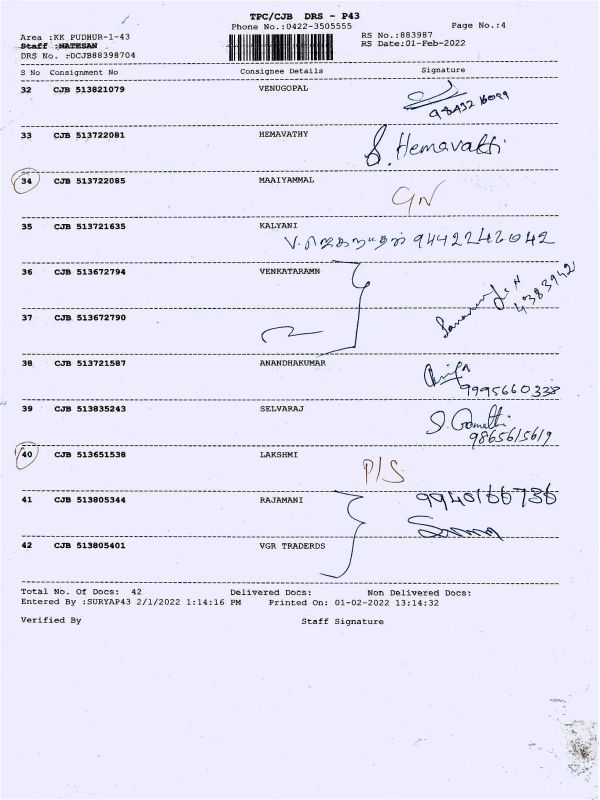 TPC/CJB DRS - P43
Phone No.:0422-3505555 Page No.:4
Area :KK PUDHUR-1-43 RS No.:883987
Staff :NATESAN RS Date:01-Feb-2022
DRS No. :DCJB88398704
S No Consignment No Consignee Details Signature
32 CJB 513821079 VENUGOPAL
98432 16099
33 CJB 513722081 HEMAVATHY S. Hemavathi
34 CJB 513722085 MAAIYAMMAL GN
35 CJB 513721635 KALYANI
9442246042
36 CJB 513672794 VENKATARAMN
37 CJB 513672790
38 CJB 513721587 ANANDHAKUMAR
9995660338
39 CJB 513835243 SELVARAJ
9865615619
40 CJB 513651538 LAKSHMI P/S
41 CJB 513805344 RAJAMANI 9940166736
42 CJB 513805401 VGR TRADERDS
Total No. Of Docs: 42 Delivered Docs: Non Delivered Docs:
Entered By :SURYAP43 2/1/2022 1:14:16 PM Printed On: 01-02-2022 13:14:32
Verified By Staff Signature